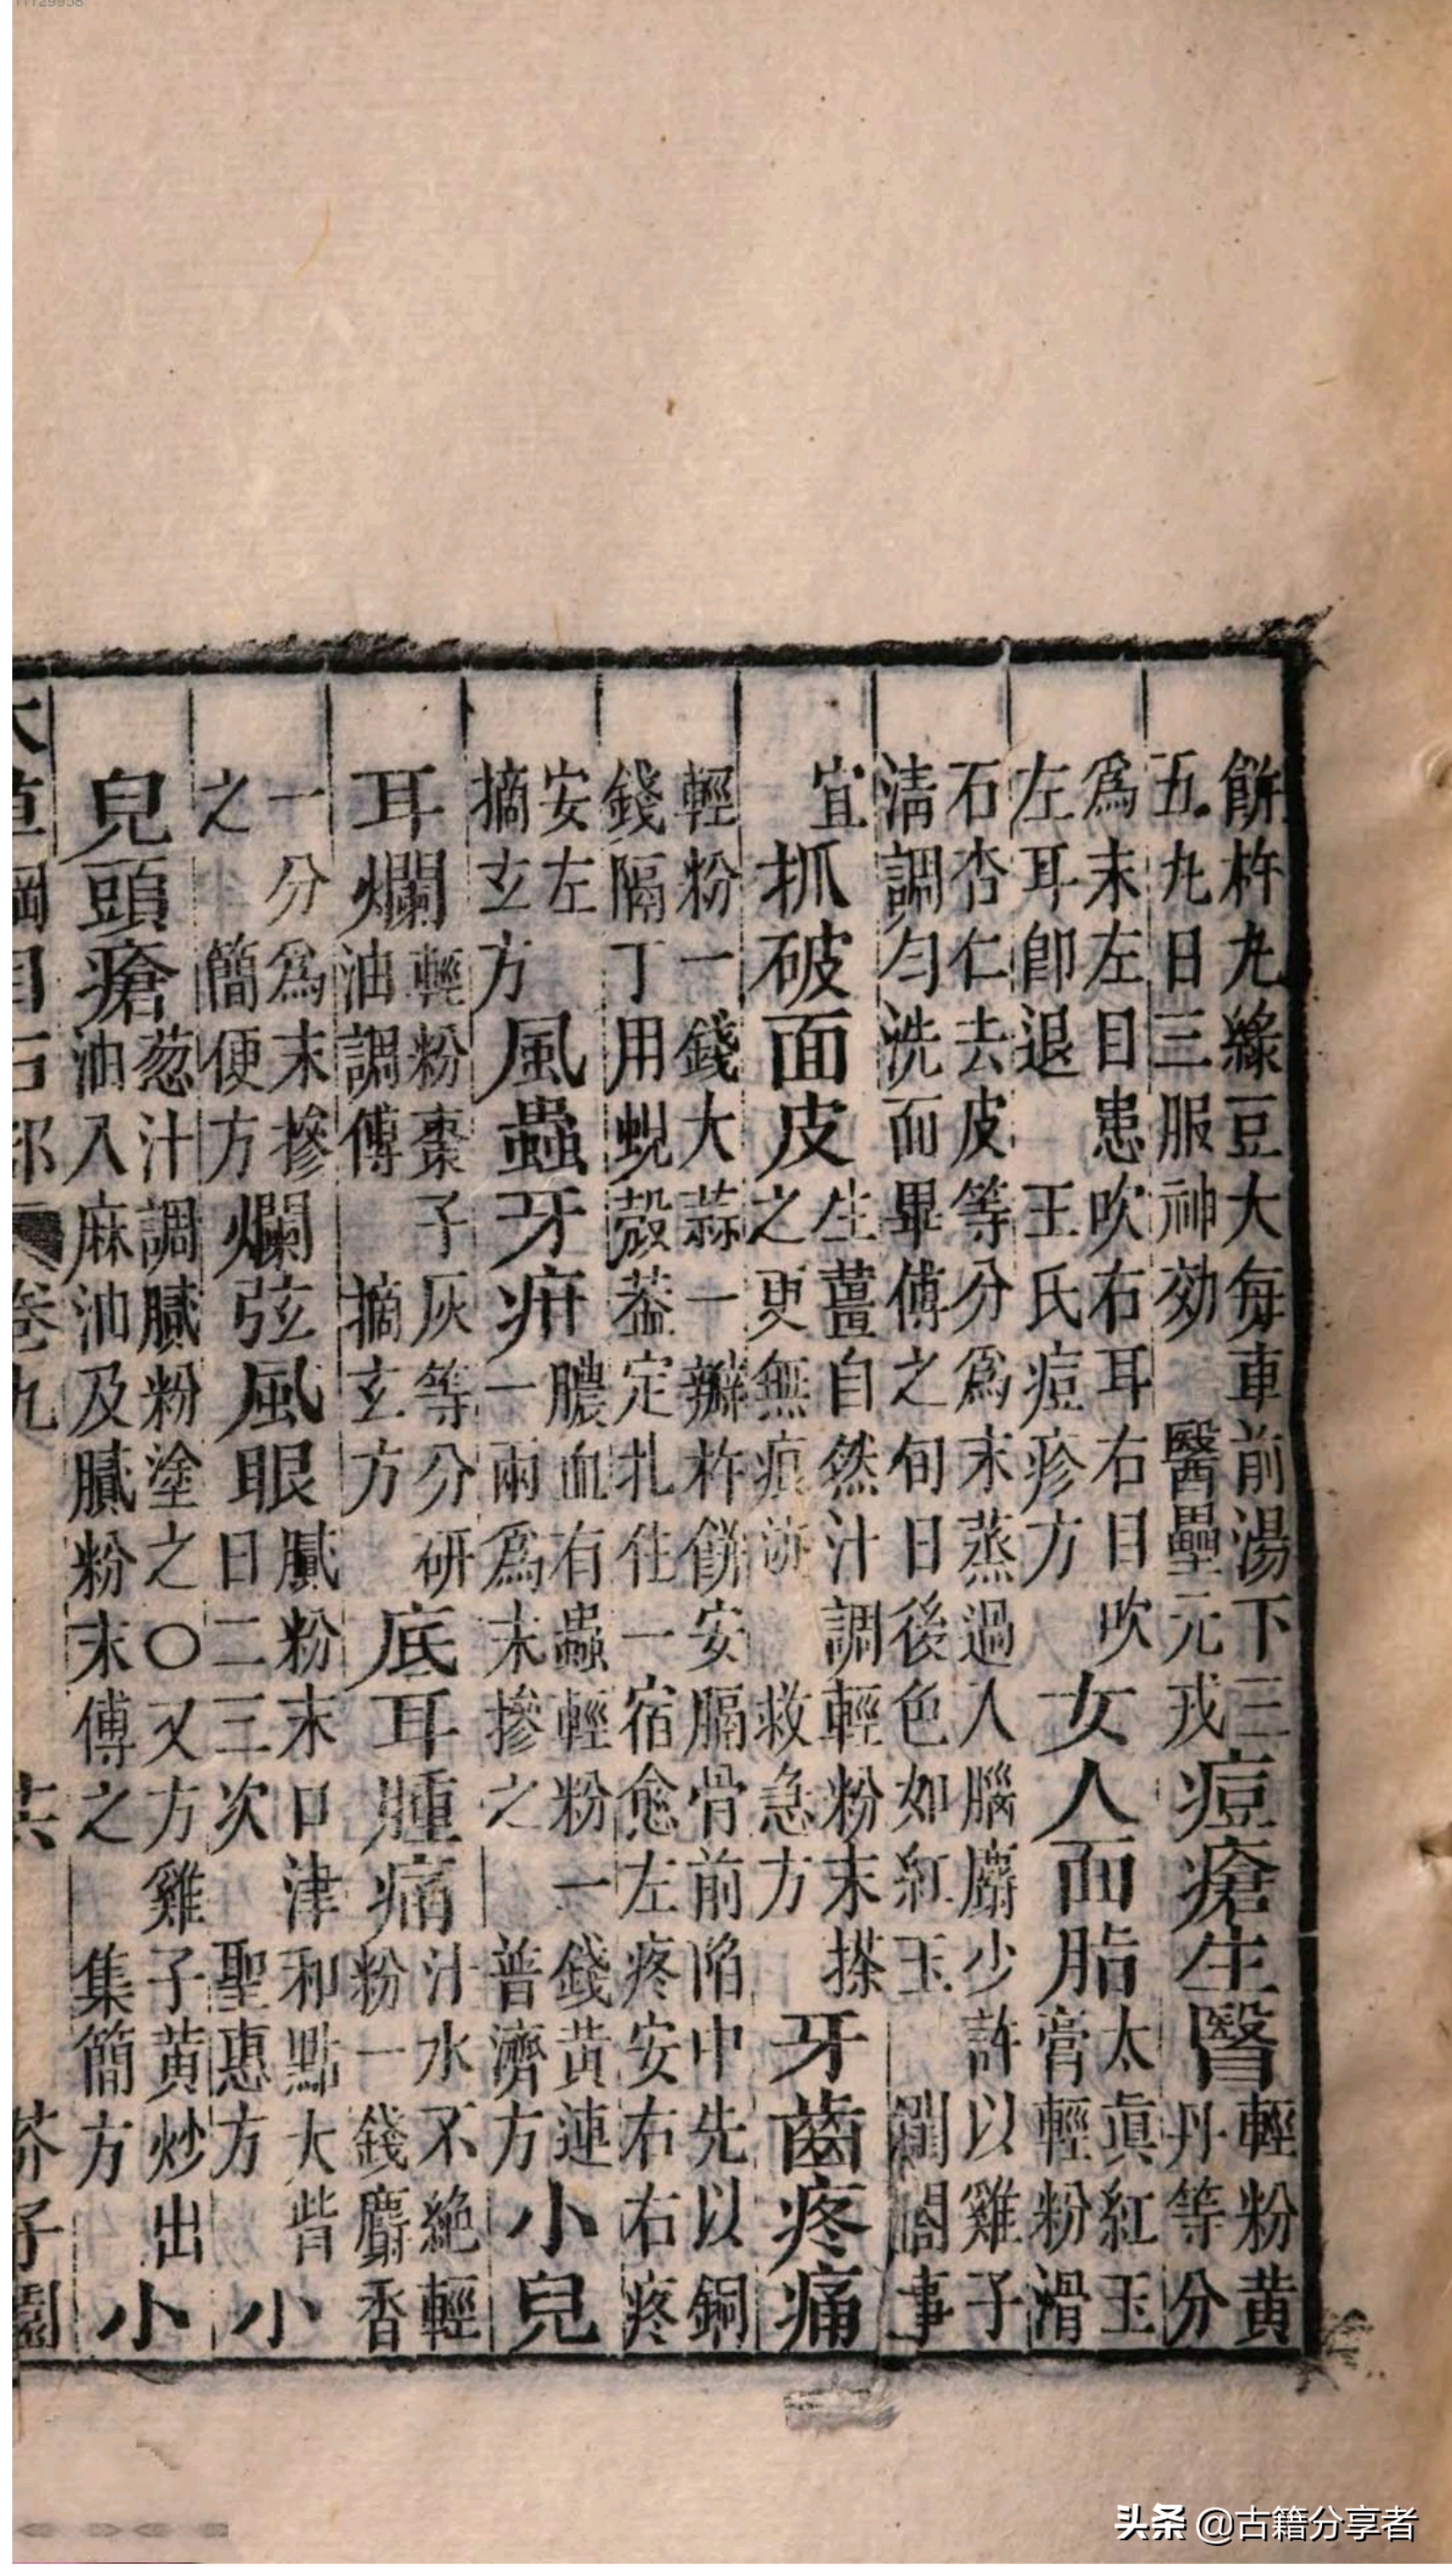 餅杵丸綠豆大每車前湯下三
五丸日三服神効 醫壘元戎
痘瘡生瞖
輕粉黃
丹等分
爲末左目患吹右耳右目吹
左耳卽退 王氏痘疹方
女人面脂
太眞紅玉
膏輕粉滑
石杏仁去皮等分爲末蒸過入腦麝少許以雞子
清調勻洗面畢傅之旬日後色如紅玉 閨閣事
宜
抓破面皮
生薑自然汁調輕粉末搽
之更無痕跡 救急方
牙齒疼痛
輕粉一錢大蒜一瓣杵餅安膈骨前陷中先以銅
錢隔了用蜆殼葢定扎住一宿愈左疼安右右疼
安左
摘玄方
風蟲牙疳
膿血有蟲輕粉一錢黃連
一兩爲末摻之 普濟方
小兒
耳爛
輕粉棗子灰等分研
油調傅 摘玄方
底耳腫痛
汁水不絕輕
粉一錢麝香
一分爲末摻
之 簡便方
爛弦風眼
膩粉末口津和點大眥
日二三次 聖惠方
小
兒頭瘡
葱汁調膩粉塗之○又方雞子黃炒出
油入麻油及膩粉末傅之 集簡方
小
本草綱目石部 卷九 芥子園
头条 @古籍分享者